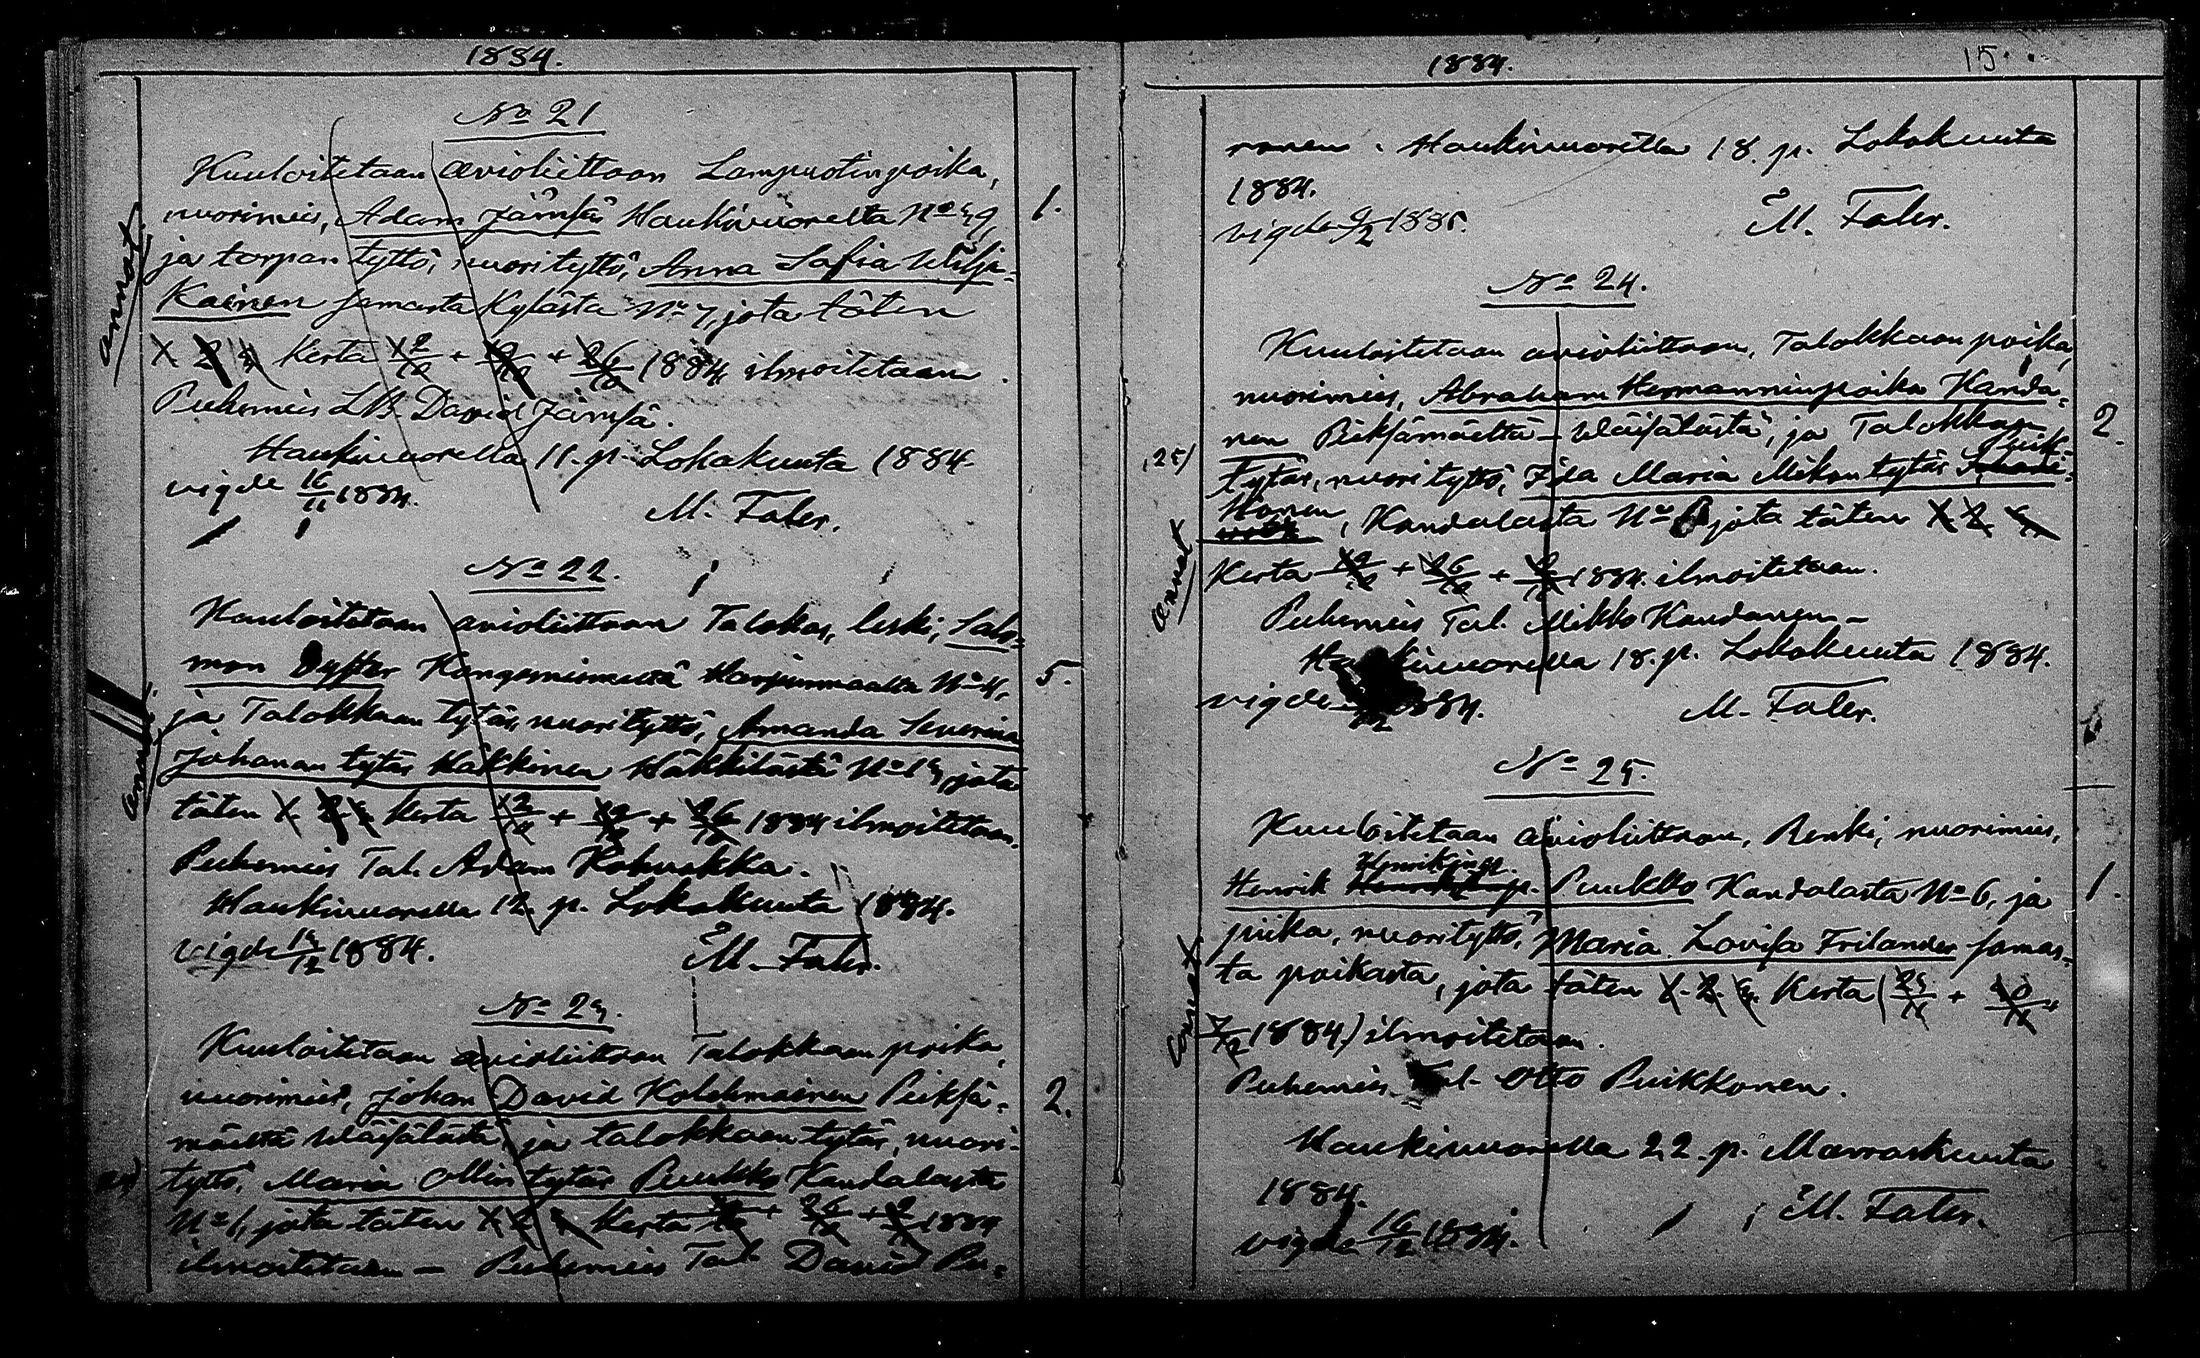 1884.
No 21
Kuuloitetaan avioliittoon Lampuotinpoika,
nuorimies, Adam Jämsä Haukivuorelta No 39,
1.
ja torpan tyttö, nuorityttö, Anna Sofia Wilja-
kainen samasta kylästä No 7, jota täten
annat
1 2 3 kerta 12/10 + 19/10 + 26/10 1884 ilmoitetaan
Puhemies LB. David Jämsä.
Haukivuorella 11. p. Lokakuuta 1884.
vigde 16/11 1884.
M. Faler.
No 22.
Kuuloitetaan avioliittoon Talokas, leski, Salo-
mon Dyster Kangasniemeltä Harjunmaalta No 4,
5.
ja Talokkaan tytär, nuorityttö, Amanda Severina
Johanan tytär Häkkinen Häkkilästä No 13, jota
täten 1. 2. 3. kerta 12/10 + 19/10 + 26/10 1884 ilmoitetaan.
Puhemies Tal. Adam
Haukivuorella 12. p. Lokakuuta 1884.
vigde 1884.
M. Faler.
No 23.
Kuuloitetaan avioliittoon Talokkaan poika,
nuorimies, Johan David Kolehmainen Pieksä-
2.
mäeltä Wäisälästä, ja talokkaan tytär, nuori-
tyttö, Maria Ollin tytär Puukko Kandalasta
No 1, jota täten 1 2 3 kerta 19/10 + 26/10 + 2/11 1884
ilmoitetaan — Puhemies Tal. David Pu-
1884.
15.
ronen. Haukivuorella 18. p. Lokakuuta
1884.
vigde 1885.
M. Faler.
No 24.
Kuuloitetaan avioliittoon, Talokkaan poika,
nuorimies, Abraham Hermanninpoika Kanda-
nen Pieksämäeltä Wäisälästä, ja Talokkaan
2.
(25)
Puik-
Tytär, nuorityttö, Ida Maria Mikon tytär
konen, Kandalasta No jota täten 1. 2. 3.
annat
kerta 19/10 + 26/10 + 2/11 1884. ilmoitetaan.
Puhemies Tal. Mikko Kandanen —
Haukivuorella 18. p. Lokakuuta 1884.
vigde 1884.
M. Faler.
No 25.
Kuuloitetaan avioliittoon, Renki, nuorimies,
Henrikinp.
Henrik p. Puukko Kandalasta No 6, ja
1.
piika, nuorityttö, Maria Lovisa Frilander samas-
ta paikasta, jota täten 1. 2. 3. kerta (23/11 + 30/11 +
annat
7/12 1884.) ilmoitetaan.
Puhemies Tal. Otto Puikkonen.
Haukivuorella 22. p. Marraskuuta
1884.
M. Faler.
vigde 16/12 1884.